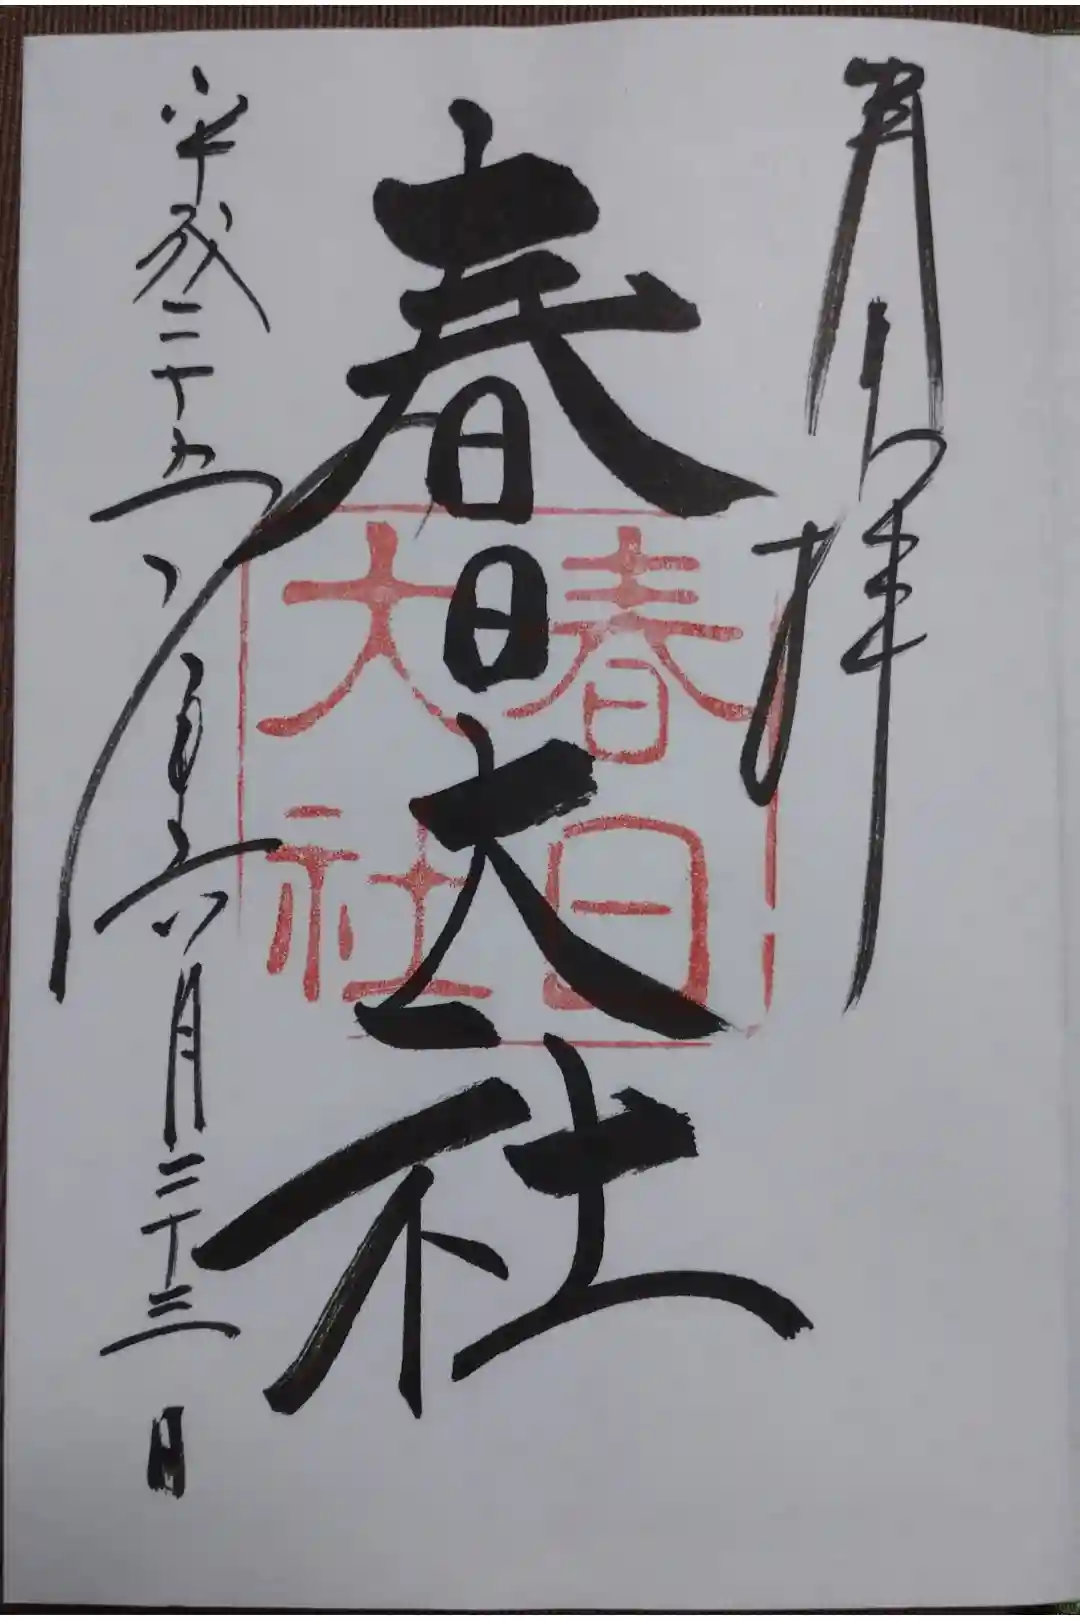 奉拝
春日大社
平成二十五年六月二十三日
春日
大社